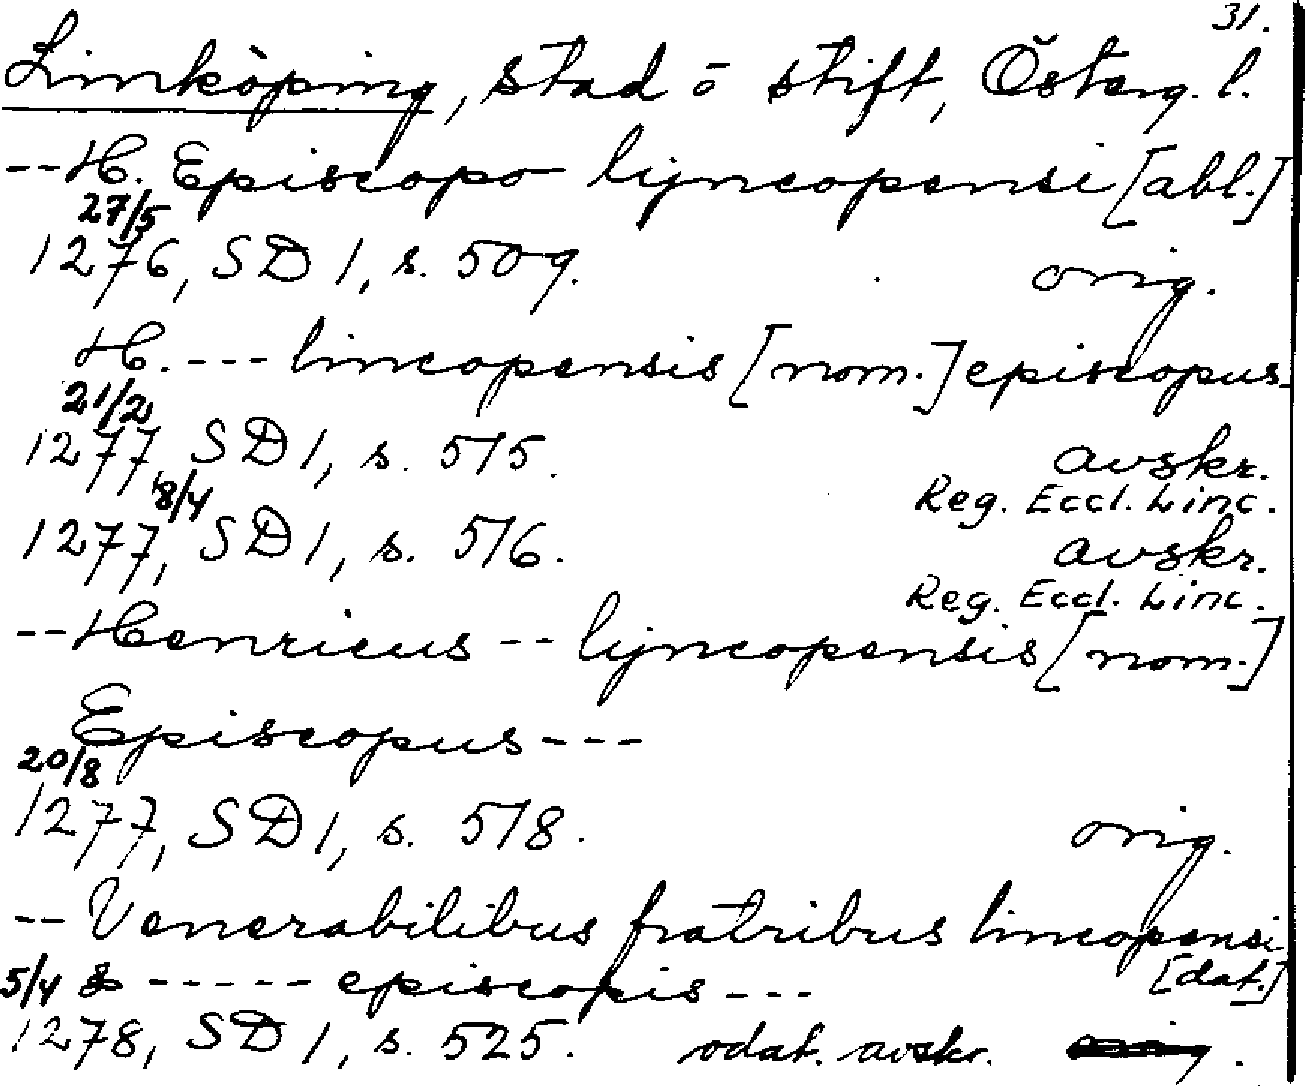 31.
Linköping, stad o stift, Österg. l.
--H. Episcopo lyncopensi [abl.]
27/5
1276, SD 1, s. 509. orig.
H. --- lincopensis [nom.] episcopus
21/2
1277, SD 1, s. 515. avskr.
Reg. Eccl. Linc.
8/4
1277, SD 1, s. 516. avskr.
Reg. Eccl. Linc.
--Henricus -- lyncopensis [nom.]
Episcopus ---
20/8
1277, SD 1, s. 518. orig.
-- Venerabilibus fratribus lincopensi
[dat.]
5/4 & ----- episcopis ---
1278, SD 1, s. 525. odat. avskr.